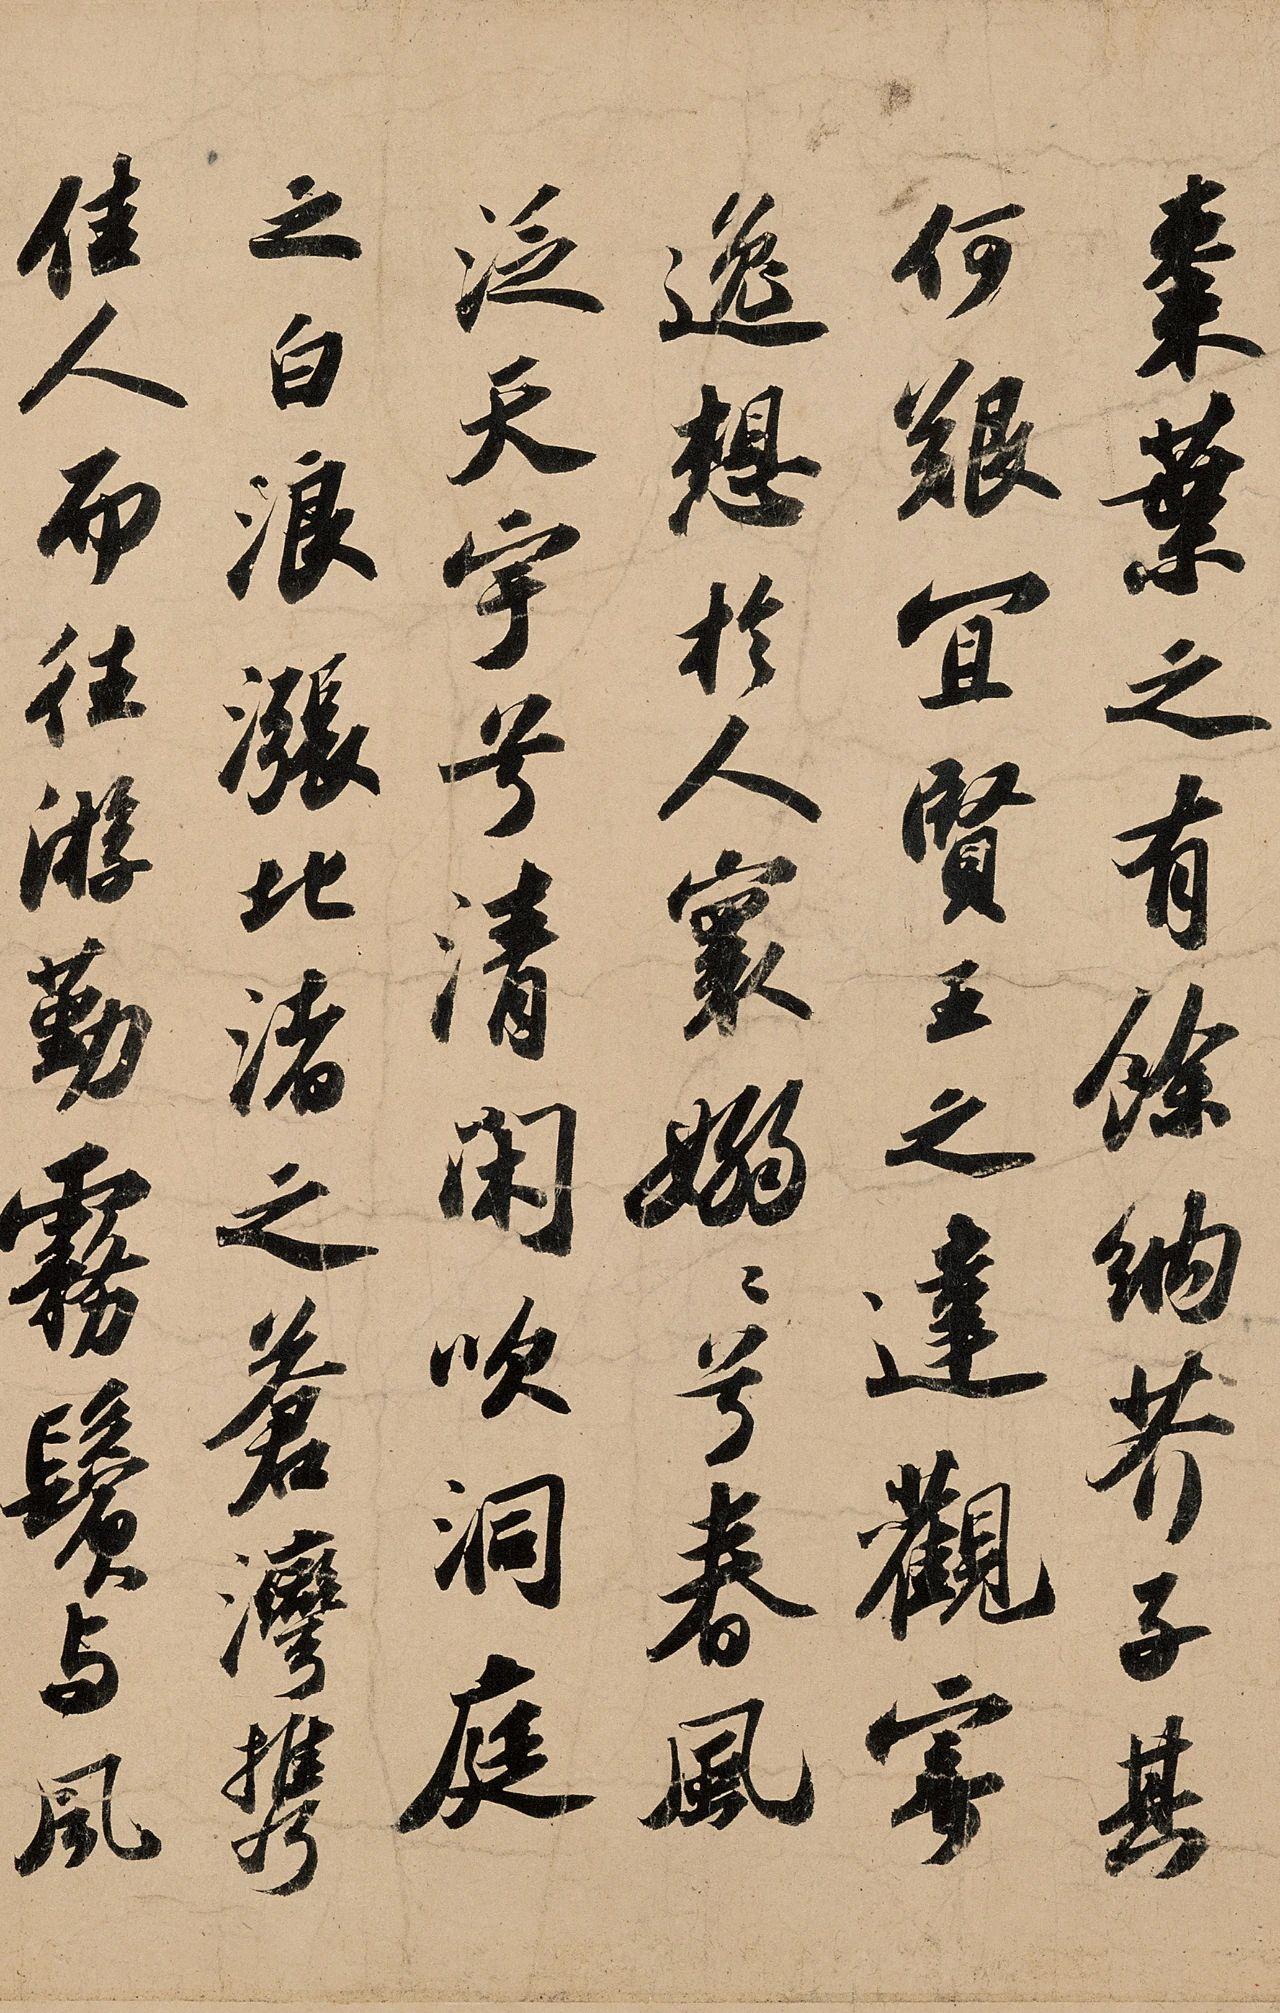 棗葉之有餘納芥子其
何艱宜賢王之達觀寄
逸想於人寰嫋〻兮春風
泛天宇兮清閑吹洞庭
之白浪漲北渚之蒼灣攜
佳人而往游勤霧鬢與風